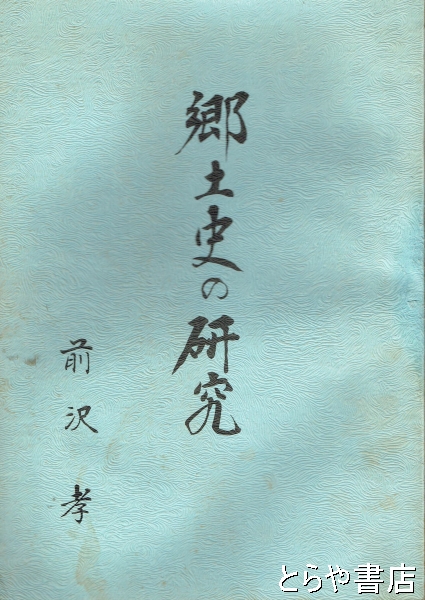 郷土史の研究
前沢 孝
とらや書店